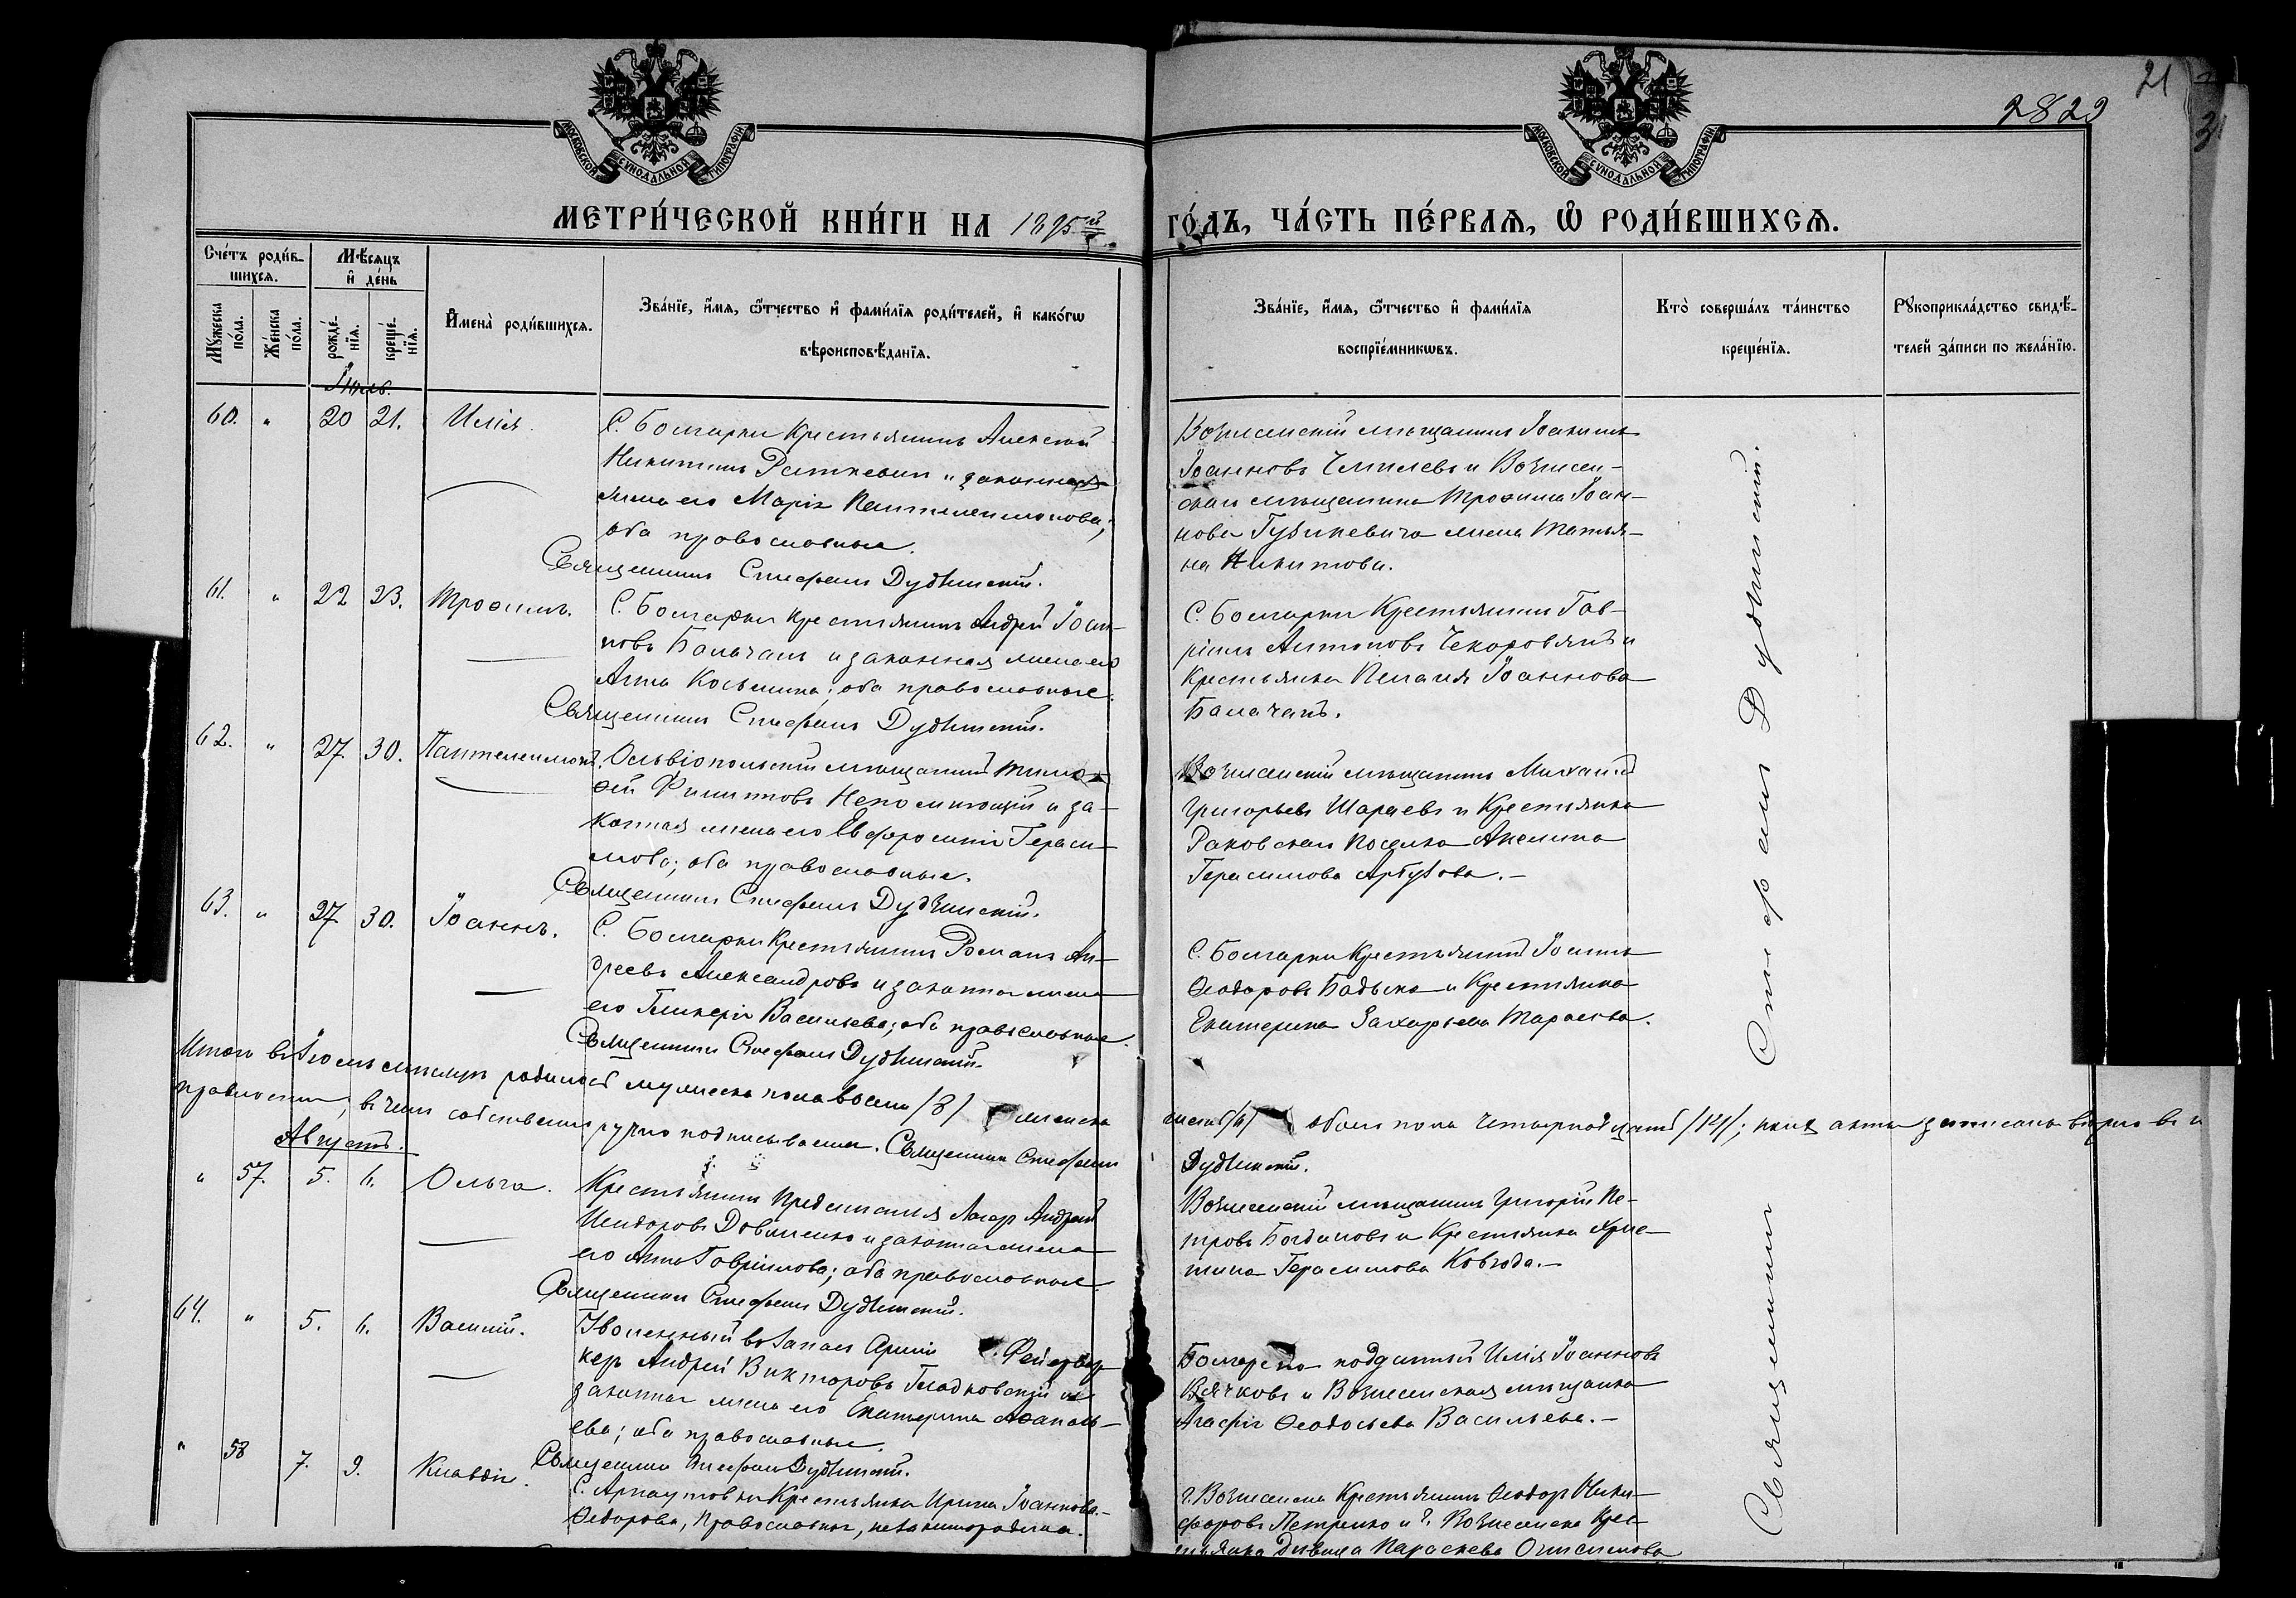 21
2829
МОСКОВСКОЙ СУНОДАЛЬНОЙ ТИПОГРАФІИ
МОСКОВСКОЙ СУНОДАЛЬНОЙ ТИПОГРАФІИ
МЕТРИ́ЧЕСКОЙ КНИ́ГИ НА 1895й
ГО́ДЪ, ЧА́СТЬ ПЕ́РВАЯ, Ѡ РОДИ́ВШИХСЯ.
Сче́тъ роди́в-
шихся.
Мѣ́сяцъ
и҆ де́нь
Му́жеска по́ла.
Же́нска по́ла.
рожде́-
нїя.
креще́-
нїя.
И҆мена̀ роди́вшихся.
Зва́нїе, и҆́мя, ѻ҆́тчество и҆ фами́лїя роди́телей, и҆ како́гѡ
вѣроисповѣ́данїя.
Зва́нїе, и҆́мя, ѻ҆́тчество и҆ фами́лїя
воспрїе́мникѡвъ.
Кто̀ соверша́лъ та́инство
креще́нїя.
Рꙋкоприкла́дство свидѣ́-
телей за́писи по жела́нїю.
Іюль.
60. " 20 21. Илія.
С. Болгарки Крестьянинъ Алексѣй
Никитинъ Раткевич и законная
жена его Марія Пантелеимонова;
оба православные.
Священникъ Стефанъ Дудзинскій.
Вознесенскій мѣщанинъ Іоакимъ
Іоанновъ Чмилевъ и Вознесен-
скаго мѣщанина Трофима Іоан-
нова Гудзикевича жена Татья-
на Никитова.
61. " 22 23. Трофимъ.
С. Болгарки Крестьянинъ Андрей Іоан-
новъ Балачанъ и законная жена его
Анна Косьмина; оба православные.
Священникъ Стефанъ Дудзинскій.
С. Болгарки Крестьянинъ Гав-
ріилъ Антоновъ Чекоровянъ и
Крестьянка Пелагія Іоаннова
Балачанъ.
62. " 27 30. Пантелеимонъ.
Ольвіопольскій мѣщанинъ Тимо-
ѳей Филиповъ Непомнющій и за-
конная жена его Евфросинія Гераси-
мова; оба православные.
Священникъ Стефанъ Дудзинскій.
Вознесенскій мѣщанинъ Михаилъ
Григорьевъ Шараевъ и Крестьянка
Раковскаго поселка Акелина
Герасимова Арбузова.-
63. " 27 30. Іоаннъ.
С. Болгарки Крестьянинъ Романъ Ан-
дреевъ Александровъ и законная жена
его Гликерія Васильева; оба православные.
Священникъ Стефанъ Дудзинскій.
С. Болгарки Крестьянинъ Іоаннъ
Ѳеодоровъ Бадыка и Крестьянка
Екатерина Захарьева Тараева.
Итого въ Іюлѣ мѣсяцѣ родилось мужеска пола восемь /8/ женска
шесть /6/ обоего пола четырнадцать /14/; акты записаны вѣрно и
правильно, въ чемъ собственноручно подписываемся. Священникъ Стефанъ
Дудзинскій.
Августъ.
" 57. 5. 6. Ольга.
Крестьянинъ Предмѣстія Лагер Андрей
Исидоровъ Довженко и законная жена
его Анна Гавріилова; оба православные.
Священникъ Стефанъ Дудзинскій.
Вознесенскій мѣщанинъ Григорій Пе-
тровъ Богдановъ и Крестьянка Хрис-
тина Герасимова Ковзода.-
64. " 5. 6. Василій.
Уволенный въ запасъ Арміи Фейервер-
керъ Андрей Викторовъ Гладковскій и
законная жена его Екатерина Аѳанась-
ева; оба православные.
Священникъ Стефанъ Дудзинскій.
Болгарско подданный Илія Іоанновъ
Вячковъ и Вознесенская мѣщанка
Агафія Ѳеодосьева Васильева.-
" 58 7. 9. Клавдія.
С. Арнаутовки Крестьянка Ирина Іоаннова
Ѳедорова, православная, незаконнорожденная.
г. Вознесенска Крестьянинъ Ѳеодоръ Ники-
форовъ Петренко и г. Вознесенска Крес-
тьянка дѣвица Параскева Онисимова
Священникъ Стефанъ Дудзинскій.